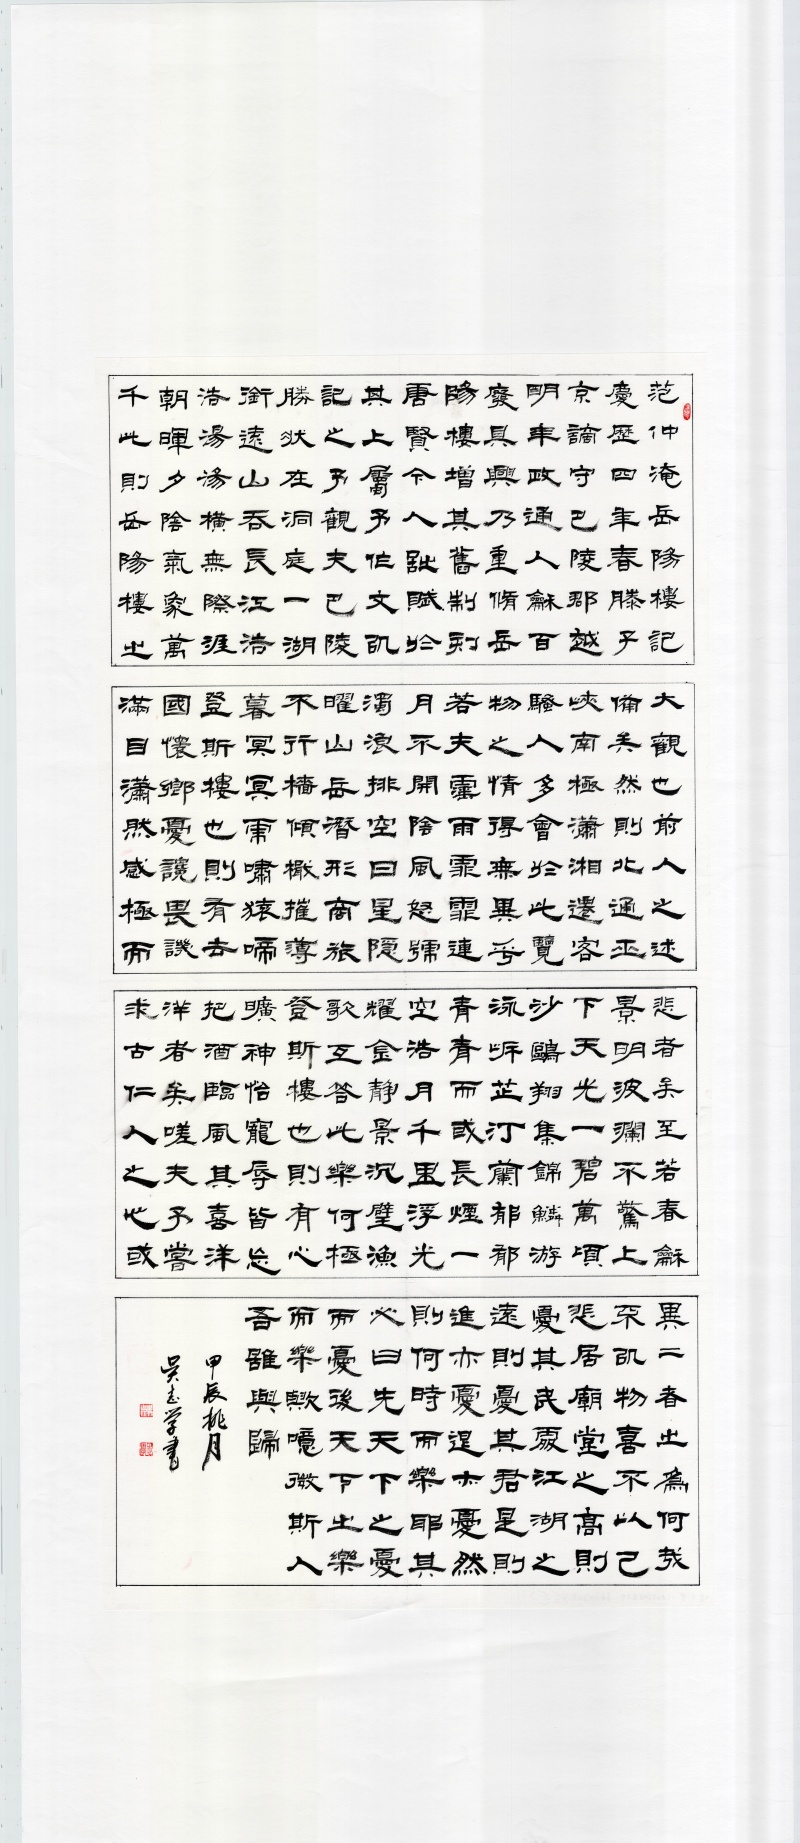 范仲淹岳陽樓記
慶歷四年春滕子
京謫守巴陵郡越
明年政通人龢百
廢具興乃重脩岳
陽樓增其舊制刻
唐賢今人詩賦於
其上屬予作文以
記之予觀夫巴陵
勝狀在洞庭一湖
銜遠山吞長江浩
浩湯湯橫無際涯
朝暉夕陰氣象萬
千此則岳陽樓之
大觀也前人之述
備矣然則北通巫
峽南極瀟湘遷客
騷人多會於此覽
物之情得無異乎
若夫霪雨霏霏連
月不開陰風怒號
濁浪排空日星隱
曜山岳潛形商旅
不行檣傾檝摧薄
暮冥冥虎嘯猿啼
登斯樓也則有去
國懷鄉憂讒畏譏
滿目瀟然感極而
悲者矣至若春龢
景明波瀾不驚上
下天光一碧萬頃
沙鷗翔集錦鱗游
泳岸芷汀蘭郁郁
青青而或長煙一
空浩月千里浮光
耀金靜景沉璧漁
歌互答此樂何極
登斯樓也則有心
曠神怡寵辱皆忘
把酒臨風其喜洋
洋者矣嗟夫予嘗
求古仁人之心或
異二者之為何哉
不以物喜不以己
悲居廟堂之高則
憂其民處江湖之
遠則憂其君是則
進亦憂退亦憂然
則何時而樂耶其
必曰先天下之憂
而憂後天下之樂
而樂歟噫微斯人
吾誰與歸
甲辰桃月
吴志学書